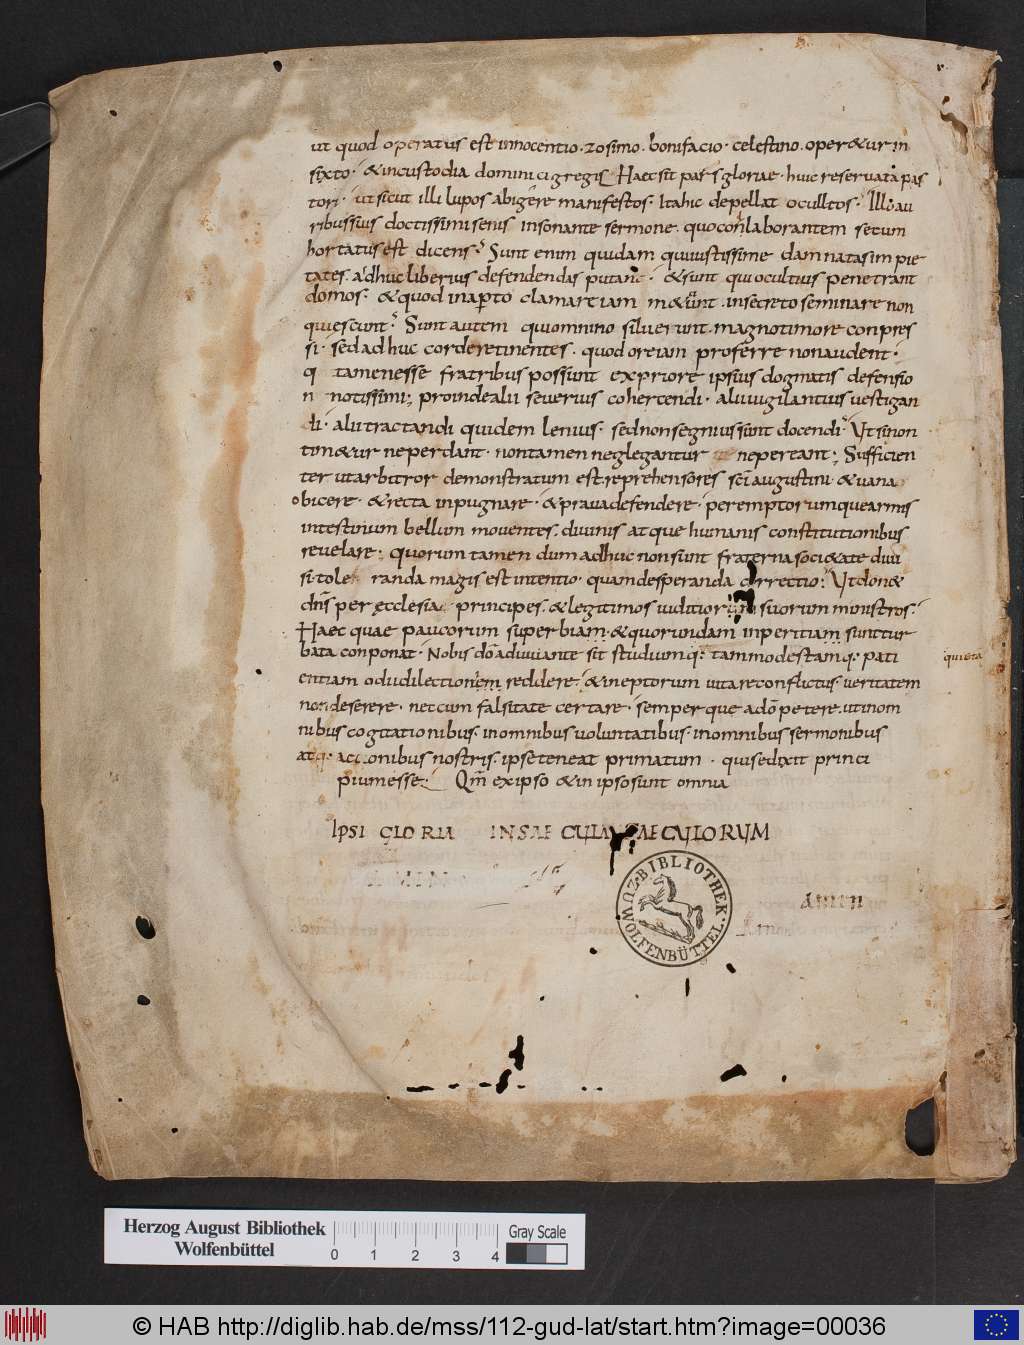 ut quod operatus est innocentio. zosimo. bonifacio. celestino. oper&ur in
sixto. &incustodia dominici gregis Haec sit pars gloriae. huic reservata pas
tori. ut sicut illi lupos abigere manifestos. Ita hic depellat occultos. Illi au
ribus suis doctissimi senis insonante sermone. quo conlaborantem secum
hortatus est dicens. Sunt enim quidam qui iustissime damnatas im pie
tates. adhuc liberius defendendas putant. &sunt qui ocultius penetrant
domos. &quod in apto clamare iam m&uunt. insecreto seminare non
quiescunt. Sunt autem qui omnino siluerunt. magno timore conpres
si. sed adhuc corde retinentes. quod ore iam proferre non audent.
q tamen esse fratribus possunt ex priore ipsius dogmatis defensio
n notissimi; proinde alii severius cohercendi. alii vigilantius vestigan
di. alii tractandi quidem lenius. sed non segnius sunt docendi. Ut si non
tim&ur ne perdant. non tamen neglegantur ne pereant; Sufficien
ter ut arbitror demonstratum est. reprehensores sci augustini. &vana
obicere. &recta inpugnare. &prava defendere. peremptorumque armis
intestinum bellum moventes. divinis atque humanis constitutionibus
revelare; quorum tamen dum adhuc non sunt fraterna soci&ate divi
si. tole randa magis est intentio. quam desperanda correctio; Ut don&
dns per ecclesiae principes. &legitimos iuditiorum suorum ministros.
Haec quae paucorum superbiam. &quorundam inperitiam sunt tur
bata conponat. Nobis do adiuuante sit studium q; tam modestam q; pati
quieta
entiam odu dilectionem reddere. &ineptorum vitare conflictus. veritatem
non deserere. nec cum falsitate certare. semper que a do petere. ut in om
nibus cogitationibus. in omnibus voluntatibus. in omnibus sermonibus
atq; accionibus nostris. ipse teneat primatum. qui se dixit princi
pium esse. Qm ex ipso &in ipso sunt omnia
IPSI GLORIA IN SAECULA SAECULORUM
AMEN
BIBLIOTHEK
ZU WOLFENBÜTTEL.
Herzog August Bibliothek
Wolfenbüttel
0 1 2 3 4
Gray Scale
© HAB http://diglib.hab.de/mss/112-gud-lat/start.htm?image=00036